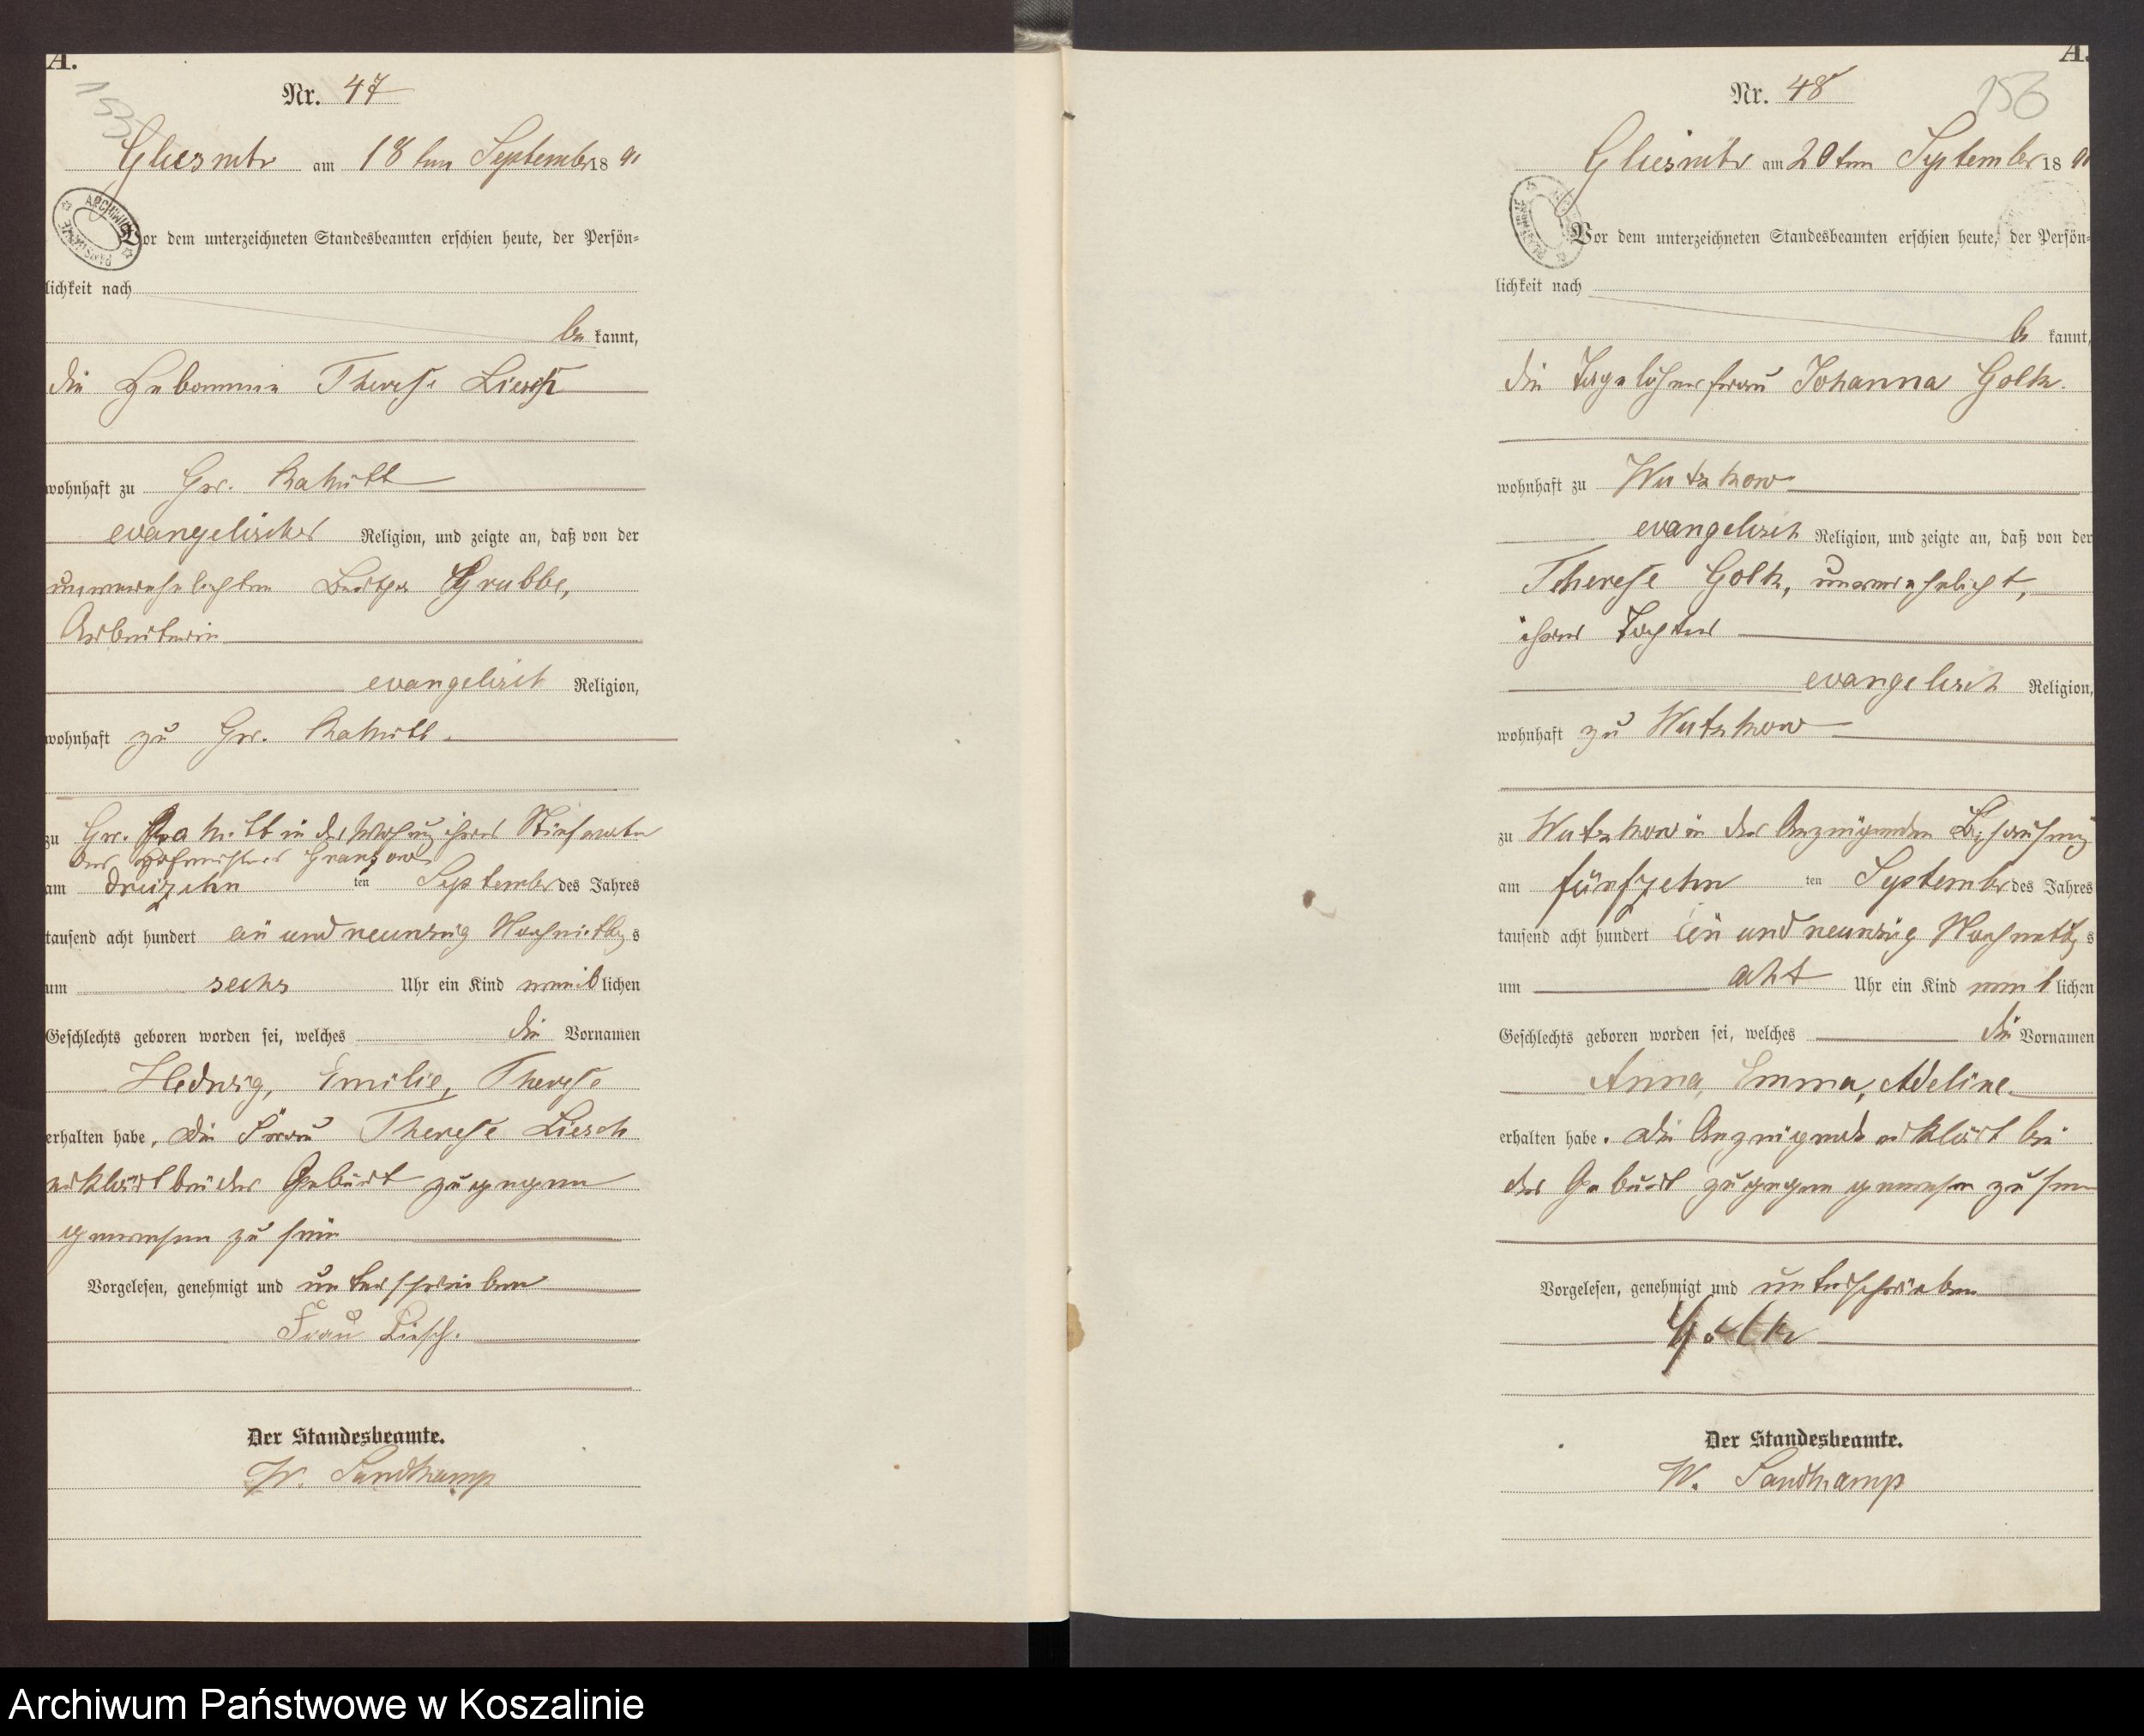 A.
Nr. 47
Gliesnitz am 18 ten September 18 91
ARCHIWUM PAŃSTWOWE
Vor dem unterzeichneten Standesbeamten erschien heute, der Persön-
lichkeit nach
be kannt,
die Hebamme Therese Liesch
wohnhaft zu Gr. Rakitt
evangelischer Religion, und zeigte an, daß von der
unverehelichten Grubbe,
Arbeiterin
evangelisch Religion,
wohnhaft zu Gr. Rakitt.
zu Gr. Rakitt in der Wohnung ihres Stiefvaters
des Hofmeisters Granzow
am dreizehn ten September des Jahres
tausend acht hundert ein und neunzig Nachmittag s
um sechs Uhr ein Kind weib lichen
Geschlechts geboren worden sei, welches die Vornamen
Hedwig, Emilie, Therese
erhalten habe. Die Frau Therese Liesch
erklärt bei der Geburt zugegen
gewesen zu sein
Vorgelesen, genehmigt und unterschrieben
Frau Liesch.
Der Standesbeamte.
W. Sandkamp
A.
156
Nr. 48
Gliesnitz am 20 ten September 18 91
Vor dem unterzeichneten Standesbeamten erschien heute, der Persön-
lichkeit nach
be kannt,
die Tagelöhnerfrau Johanna Golk.
wohnhaft zu Wutzkow
evangelisch Religion, und zeigte an, daß von der
Therese Golk, unverehelicht,
ihrer Tochter
evangelisch Religion,
wohnhaft zu Wutzkow
zu Wutzkow in der Anzeigenden Behausung
am fünfzehn ten September des Jahres
tausend acht hundert ein und neunzig Nachmittag s
um acht Uhr ein Kind weib lichen
Geschlechts geboren worden sei, welches die Vornamen
Anna, Emma, Adeline
erhalten habe. Die Anzeigende erklärt bei
der Geburt zugegen gewesen zu sein
Vorgelesen, genehmigt und unterschrieben
Golk
Der Standesbeamte.
W. Sandkamp
Archiwum Państwowe w Koszalinie